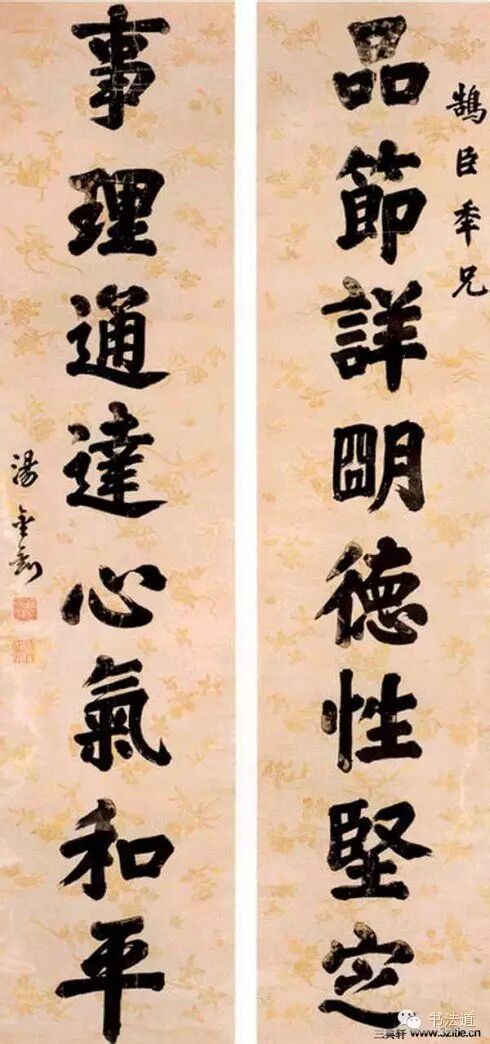 鵠臣秊兄
品節詳朙徳性堅定
事理通達心氣和平
湯金釗
书法道
www.3zitie.cn